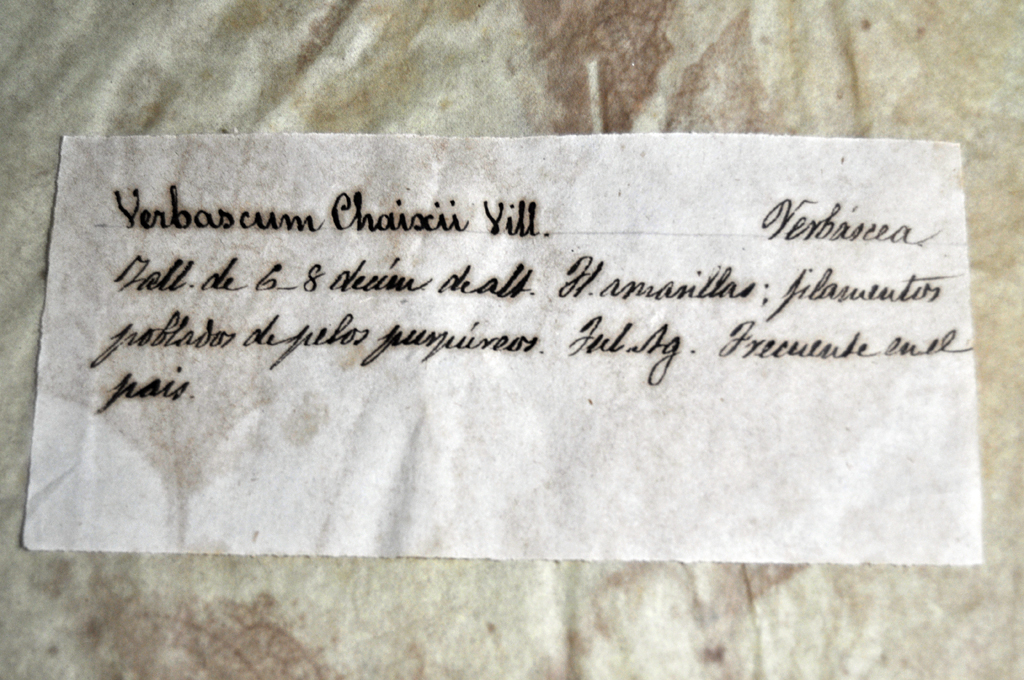 Verbascum Chaixii Vill. Verbáscea
Tall. de 6-8 decím. de alt. Fl. amarillas; filamentos
poblados de pelos purpúreos. Jul. Ag. Frecuente en el
pais.